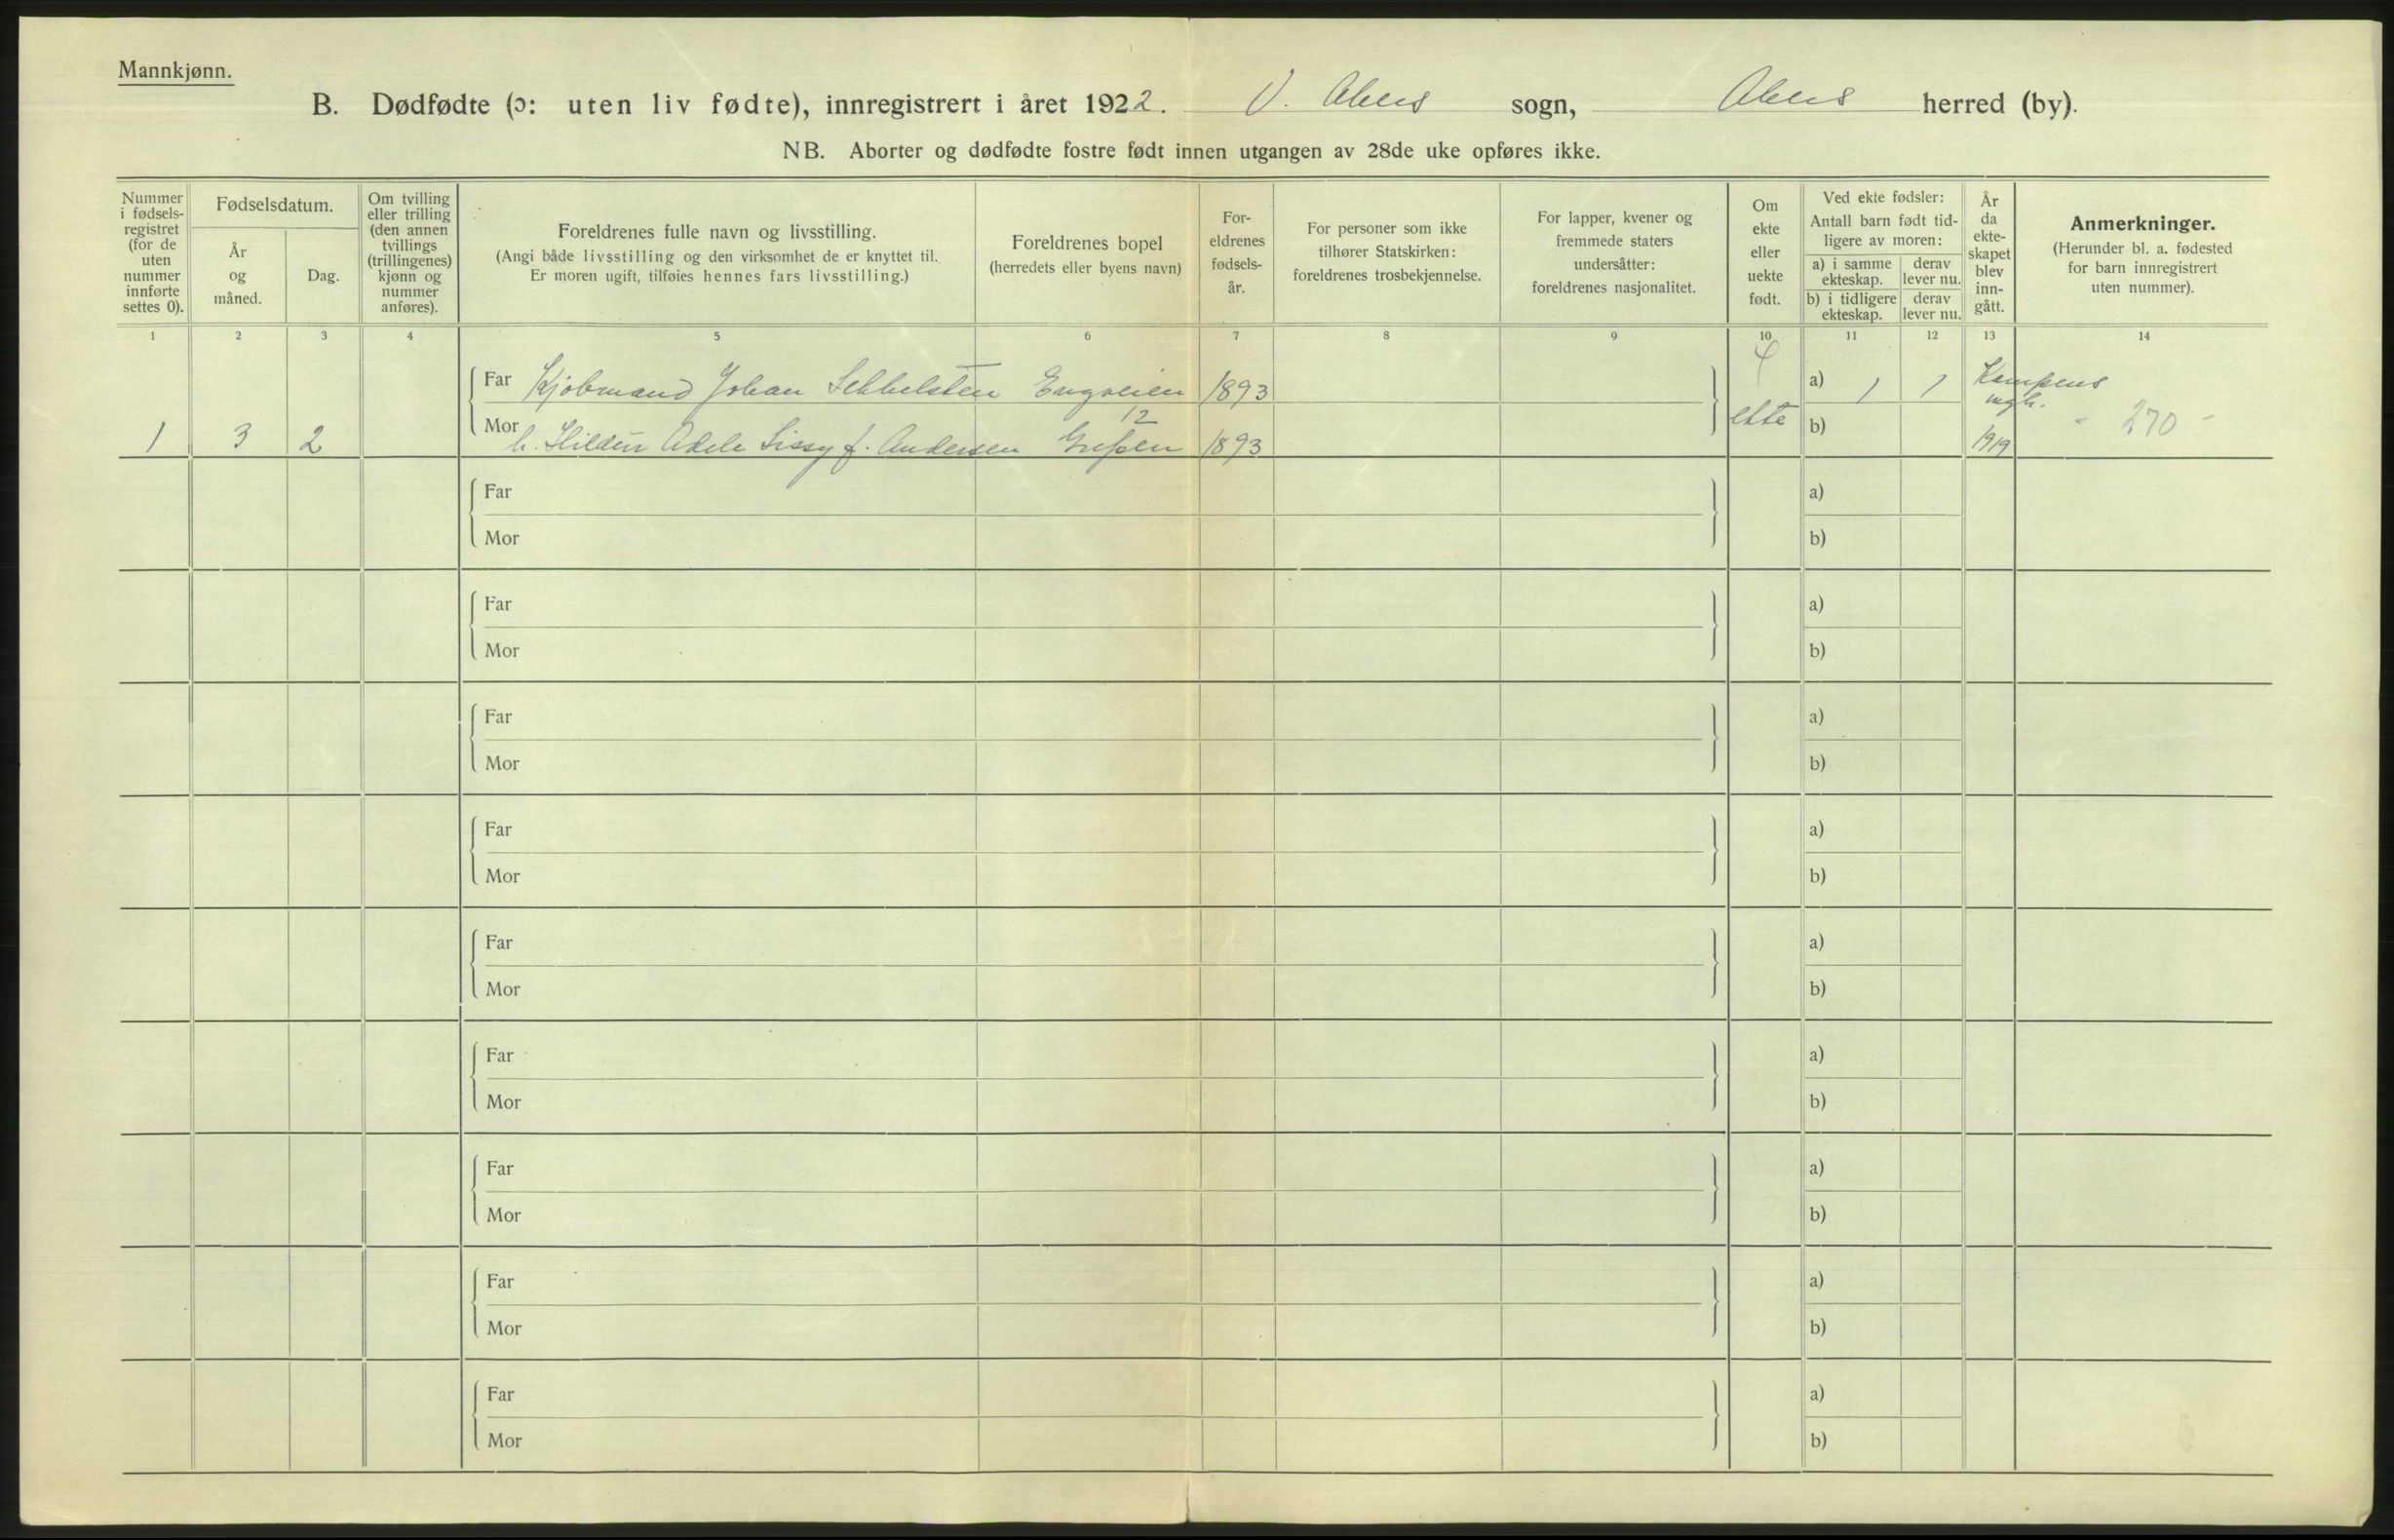 Mannkjønn.
B. Dødfødte (ɔ: uten liv fødte), innregistrert i året 1922. V. Akers sogn, Akers herred (by).
NB. Aborter og dødfødte fostre født innen utgangen av 28de uke opføres ikke.
Nummer
i fødsels-
registret
(for de
uten
nummer
innførte
settes 0).
Fødselsdatum.
År
og
måned.
Dag.
Om tvilling
eller trilling
(den annen
tvillings
(trillingenes)
kjønn og
nummer
anføres).
Foreldrenes fulle navn og livsstilling.
(Angi både livsstilling og den virksomhet de er knyttet til.
Er moren ugift, tilføies hennes fars livsstilling.)
Foreldrenes bopel
(herredets eller byens navn)
For-
eldrenes
fødsels-
år.
For personer som ikke
tilhører Statskirken:
foreldrenes trosbekjennelse.
For lapper, kvener og
fremmede staters
undersåtter:
foreldrenes nasjonalitet.
Om
ekte
eller
uekte
født.
Ved ekte fødsler:
Antall barn født tid-
ligere av moren:
a) i samme
ekteskap.
derav
lever nu.
b) i tidligere
ekteskap.
derav
lever nu.
År
da
ekte-
skapet
blev
inn-
gått.
Anmerkninger.
(Herunder bl. a. fødested
for barn innregistrert
uten nummer).
1 2 3 4 5 6 7 8 9 10 11 12 13 14
Far Kjøbmand Johan Sekkelsten Engveien 1893 a) 1 1 Kampens
12 mgh.
1 3 2 Mor h. Hildur Adele Sissy f. Andersen Grefsen 1893 ekte b) 1919 - 270 -
Far a)
Mor b)
Far a)
Mor b)
Far a)
Mor b)
Far a)
Mor b)
Far a)
Mor b)
Far a)
Mor b)
Far a)
Mor b)
Far a)
Mor b)
Far a)
Mor b)